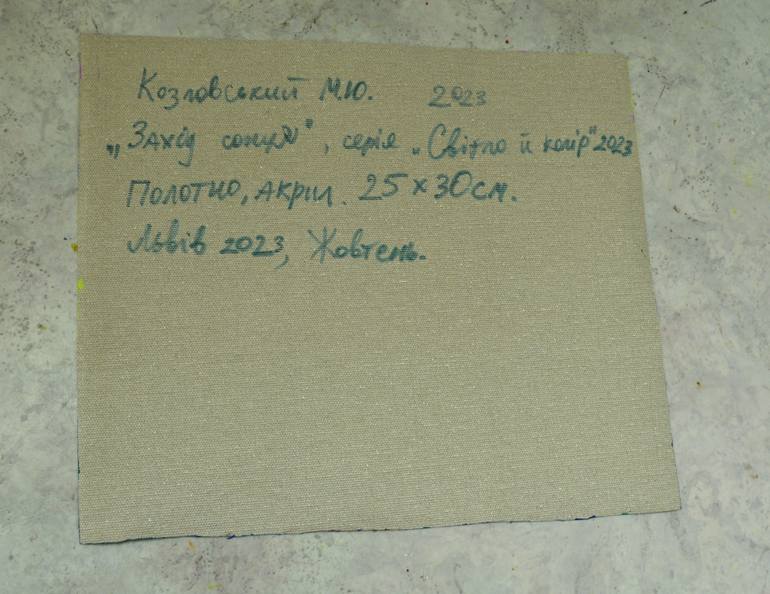 Козловський М.Ю. 2023
„Захід сонця", серія „Світло й колір" 2023
Полотно, акрил. 25 х 30 см.
Львів 2023, Жовтень.